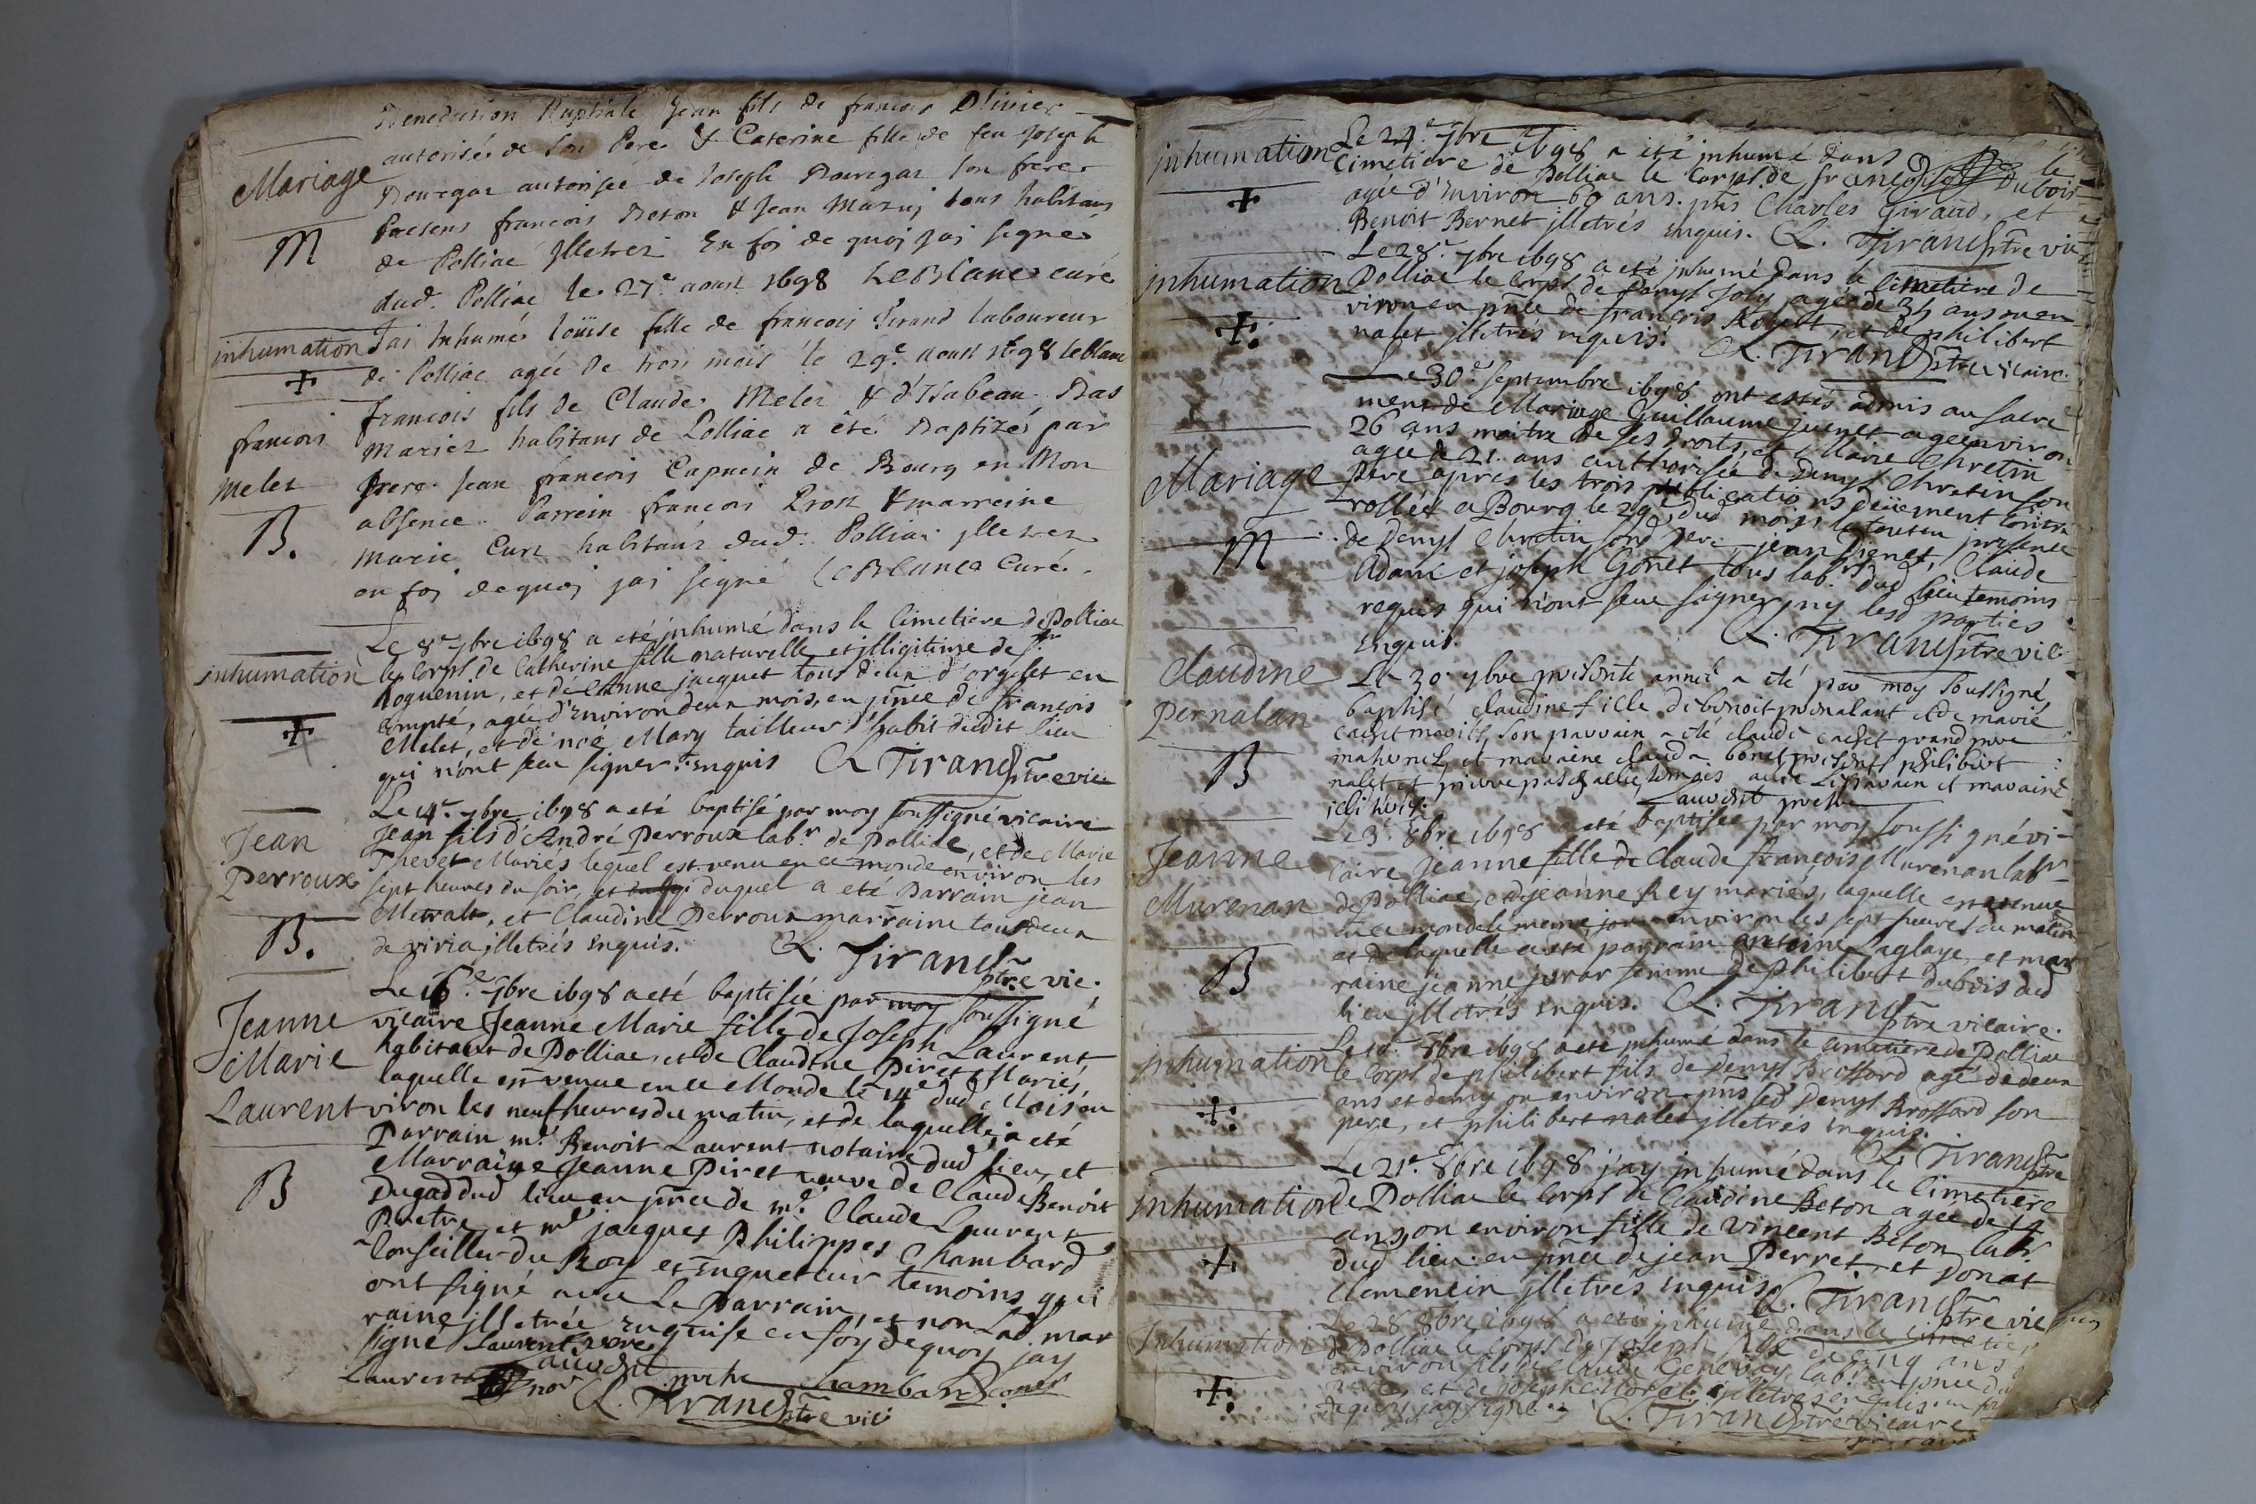 Benediction Nuptiale Jean fils de francois Olivier
Mariage
autorisé de son Pere & Caterine fille de feu Joseph
Bouvgaz autorisée de Joseph Bouvgaz son frere
Presens francois Beton & Jean Mazuy tous habitans
M
de Polliac Illetrez En foi de quoj jai signé
dud. Polliac le 27e aoust 1698 LeBlanc curé
inhumation
Jai Inhumé Loüise fille de francois Tirand laboureur
de Polliac agée de trois mois le 29e aoust 1698 leblanc
francois
melez
B.
francois fils de Claude Melez & d'Isabeau Bas
Mariez habitans de Polliac a été Baptizé par
frere Jean francois Capucin de Bourg en Mon
absence. Parrein francois Prost & marreine
Marie Curt habitans dud. Polliac Illetrez
en foj de quoj jai signé LeBlanc Curé.
inhumation
Le 8e 7bre 1698 a eté inhumé dans le Cimetiere de Polliac
le Corps de Catherine fille naturelle et illigitime de
Roguenin, et de Anne jacquet tous deux d'orgelet en
Compté, agée d'Environ deux mois, en pñce de françois
Melet, et de noé Mary tailleur d'habit dudit lieu
qui n'ont seu signer Enquis C. Tirand ptre vic
Jean
Perroux
B.
Le 14e 7bre 1698 a eté baptisé par moy soussigné vicaire
Jean fils d'André Perroux labr de Polliac, et de Marie
Thevet Mariés lequel est venu en ce monde environ les
sept heures du soir, et duquel a eté Parrain jean
Metralt, et Claudine Perroux marraine tous deux
de viria illetrés Enquis. C. Tirand ptre vic.
Jeanne
Marie
Laurent
B
Le 16e 7bre 1698 a eté baptisée par moy soussigné
vicaire Jeanne Marie fille de Joseph Laurent
habitant de Polliac, et de Claudine Piret Mariés,
laquelle est venue en ce Monde le 14e dud Mois en
viron les neuf heures du matin, et de laquelle a eté
Parrain mr Benoit Laurent notaire dud lieu, et
Marraine Jeanne Piret veuve de Claude Benoit
Dugad dud lieu en pñce de mr Claude Laurent
Prestre, et mr jacques Philippes Chambard
Conseiller du Roy et Enqueteur temoins qui
ont signé avec Le Parrain, et non Lad. mar
raine illetrée Enquise en foy de quoy jay
signé Laurent
Laurent nor Chambard
C. Tirand ptre vic.
inhumation
Le 24e 7bre 1698 a été inhumé dans le
Cimetiere de Polliac le Corps de françois Dubois
agée d'Environ 60 ans. pñs Charles Giraud, et
Benoit Bernet illetrés Enquis. C. Tirand ptre vic
inhumation
Le 28e 7bre 1698 a eté inhumé dans le Cimetiere de
Polliac le Corps de Denys Joly agée de 35 ans ou en
viron en pñce de françois Robelt, et de philibert
nalet illetrés requis. C. Tirand ptre vicaire.
Mariage
M
Le 30e septembre 1698 ont estés admis au sacre
ment de Mariage Guillaume juenet agé environ
26 ans maitre de ses droits, et Marie Chretin
agée de 21. ans authorisée de Denys Chretin son
Pere apres les trois publications deüement Cont
rollées a Bourg le 29e dud mois, le tout en presence
de Denys Chretin sond. Pere jean Pienet, Claude
Adam et joseph Gonet tous labrs dud lieu temoins
requis qui n'ont seue signer ny lesd parties
Enquis. C. Tirand ptre vic.
Claudine
Pernalan
B
Le 30e 7bre presente année a eté par moy soussigné
baptisé claudine fille de benoit pernalant et de marie
cachet mariés, son parrain a été claude cachet grand pere
maternel, et maraine claude bonet presents philibert
nalet et pierre pasquallie temoins avec le parrain et maraine
illitrés.
Jeanne
Murenan
B
Le 3e 8bre 1698 a eté baptisée par moy soussigné vi-
caire Jeanne fille de Claude françois Murenan labr
de Polliac, et jeanne Rey mariés, laquelle est venue
en ce monde le meme jour environ les sept heures du matin
et de laquelle a eté parrain antoine Laglaye, et mar
raine jeanne juvar femme de philibert dubois dud
lieu illetrés Enquis. C. Tirand ptre vicaire.
inhumation
Le 10e 8bre 1698 a eté inhumé dans le Cimetiere de Polliac
le Corps de philibert fils de Denys Brossard agé de deux
ans et demy ou environ pñs led Denys Brossard son
pere, et philibert nalet illetrés Enquis.
C. Tirand ptre
inhumation
Le 21e 8bre 1698 j'ay inhumé dans le Cimetiere
de Polliac le Corps de Claudine Beton agée de 14
ans, ou environ fille de vincent Beton labr
dud lieu. en pñce de jean Perret, et Donat
Clemencin illetrés Enquis. C. Tirand ptre vic
Inhumation
Le 28 8bre 1698 a eté inhumé dans le Cimetier
de Polliac le Corps de Joseph agé de cinq ans
environ fils de Claude Genevay labr en pñce du
pere, et de joseph Morel illetrés enquis en foy
de quoy jay signé C. Tirand ptre vicaire